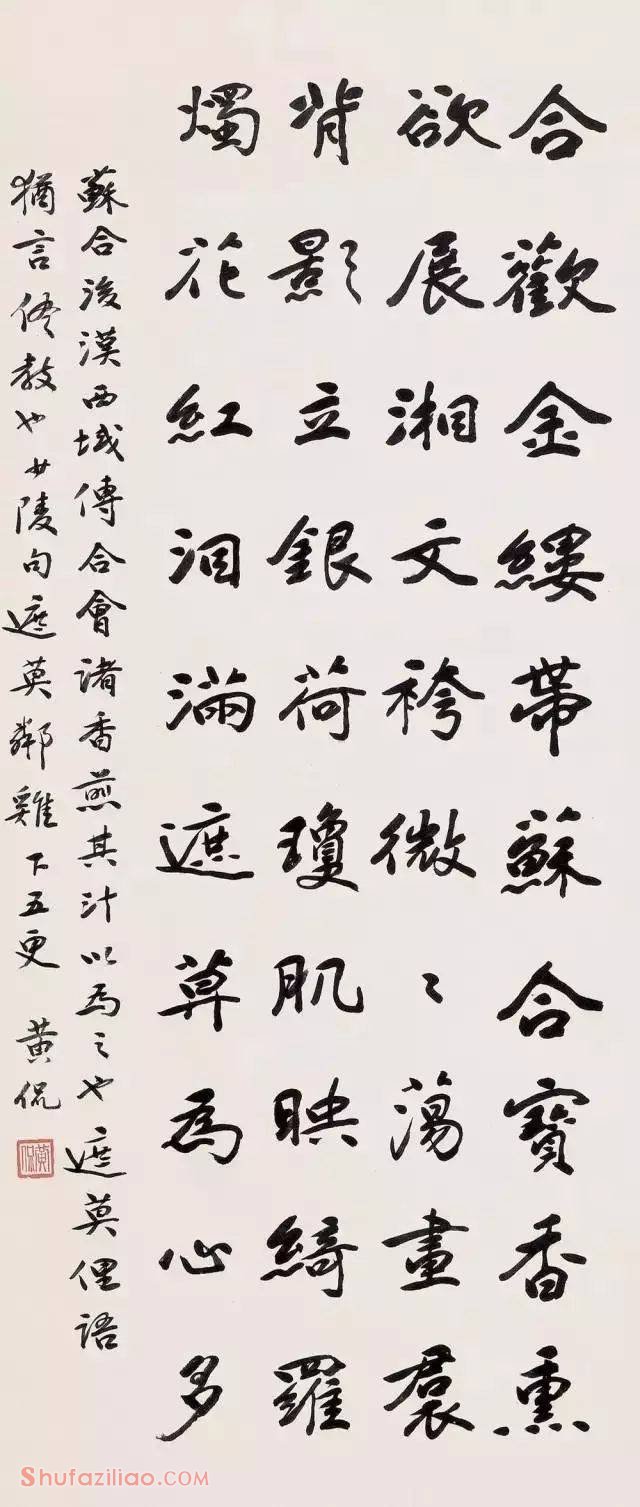 合歡金縷帶蘇合寶香熏
欲展湘文袴微〻蕩畫裠
背影立銀荷瓊肌映綺羅
燭花紅泪滿遮莫為心多
蘇合後漢西域傳合會諸香煎其汁以為之也遮莫俚語
猶言侭教也少陵句遮莫鄰雞下五更 黄侃
黄侃
Shufaziliao.COM